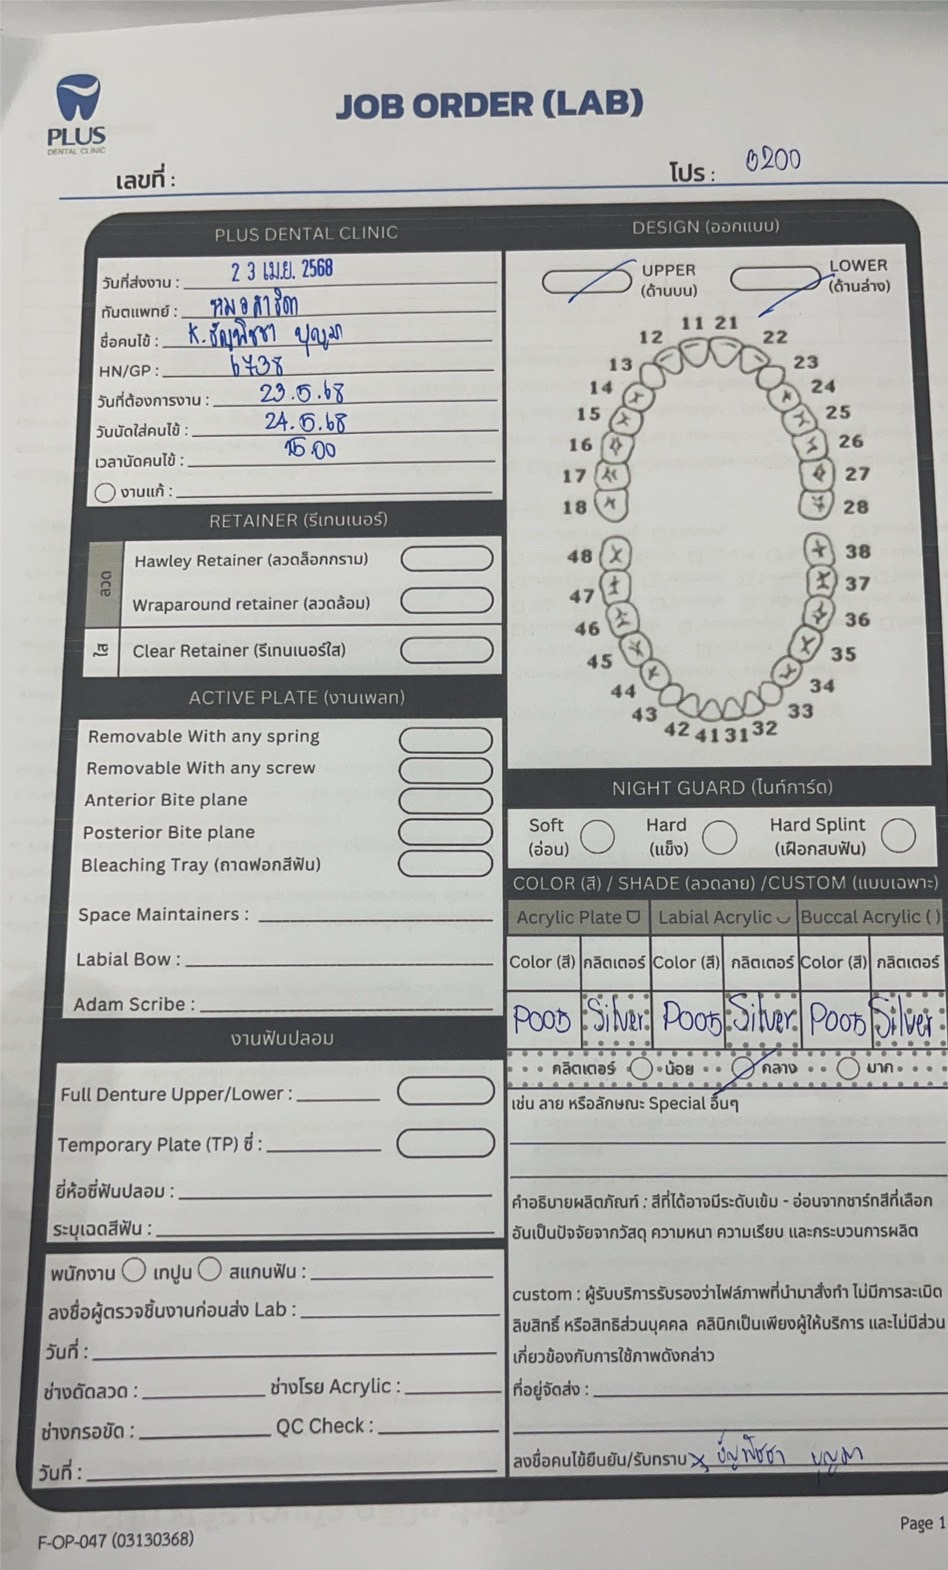 PLUS
DENTAL CLINIC
JOB ORDER (LAB)
เลขที่ :
โปร : 0200
PLUS DENTAL CLINIC
วันที่ส่งงาน : 2 3 เม.ย. 2568
ทันตแพทย์ : หมอสาธิตา
ชื่อคนไข้ : K. ธัญพิชชา บุญมา
HN/GP : 6738
วันที่ต้องการงาน : 23.5.68
วันนัดใส่คนไข้ : 24.5.68
เวลานัดคนไข้ : 15.00
งานแก้ :
RETAINER (รีเทนเนอร์)
ลวด
Hawley Retainer (ลวดล็อกกราม)
Wraparound retainer (ลวดล้อม)
ใส
Clear Retainer (รีเทนเนอร์ใส)
ACTIVE PLATE (งานเพลท)
Removable With any spring
Removable With any screw
Anterior Bite plane
Posterior Bite plane
Bleaching Tray (ถาดฟอกสีฟัน)
Space Maintainers :
Labial Bow :
Adam Scribe :
งานฟันปลอม
Full Denture Upper/Lower :
Temporary Plate (TP) ซี่ :
ยี่ห้อซี่ฟันปลอม :
ระบุเฉดสีฟัน :
พนักงาน เทปูน สแกนฟัน :
ลงชื่อผู้ตรวจชิ้นงานก่อนส่ง Lab :
วันที่ :
ช่างดัดลวด : ช่างโรย Acrylic :
ช่างกรอขัด : QC Check :
วันที่ :
DESIGN (ออกแบบ)
UPPER LOWER
(ด้านบน) (ด้านล่าง)
11 21
12 22
13 23
14 24
15 25
16 26
17 27
18 28
48 38
47 37
46 36
45 35
44 34
43 33
42 41 31 32
NIGHT GUARD (ไนท์การ์ด)
Soft Hard Hard Splint
(อ่อน) (แข็ง) (เฝือกสบฟัน)
COLOR (สี) / SHADE (ลวดลาย) /CUSTOM (แบบเฉพาะ)
Acrylic Plate Labial Acrylic Buccal Acrylic ( )
Color (สี) กลิตเตอร์ Color (สี) กลิตเตอร์ Color (สี) กลิตเตอร์
P005 Silver P005 Silver P005 Silver
กลิตเตอร์ น้อย กลาง มาก
เช่น ลาย หรือลักษณะ Special อื่นๆ
คำอธิบายผลิตภัณฑ์ : สีที่ได้อาจมีระดับเข้ม - อ่อนจากชาร์ทสีที่เลือก
อันเป็นปัจจัยจากวัสดุ ความหนา ความเรียบ และกระบวนการผลิต
custom : ผู้รับบริการรับรองว่าไฟล์ภาพที่นำมาสั่งทำ ไม่มีการละเมิด
ลิขสิทธิ์ หรือสิทธิส่วนบุคคล คลินิกเป็นเพียงผู้ให้บริการ และไม่มีส่วน
เกี่ยวข้องกับการใช้ภาพดังกล่าว
ที่อยู่จัดส่ง :
ลงชื่อคนไข้ยืนยัน/รับทราบ x ธัญพิชชา บุญมา
F-OP-047 (03130368)
Page 1